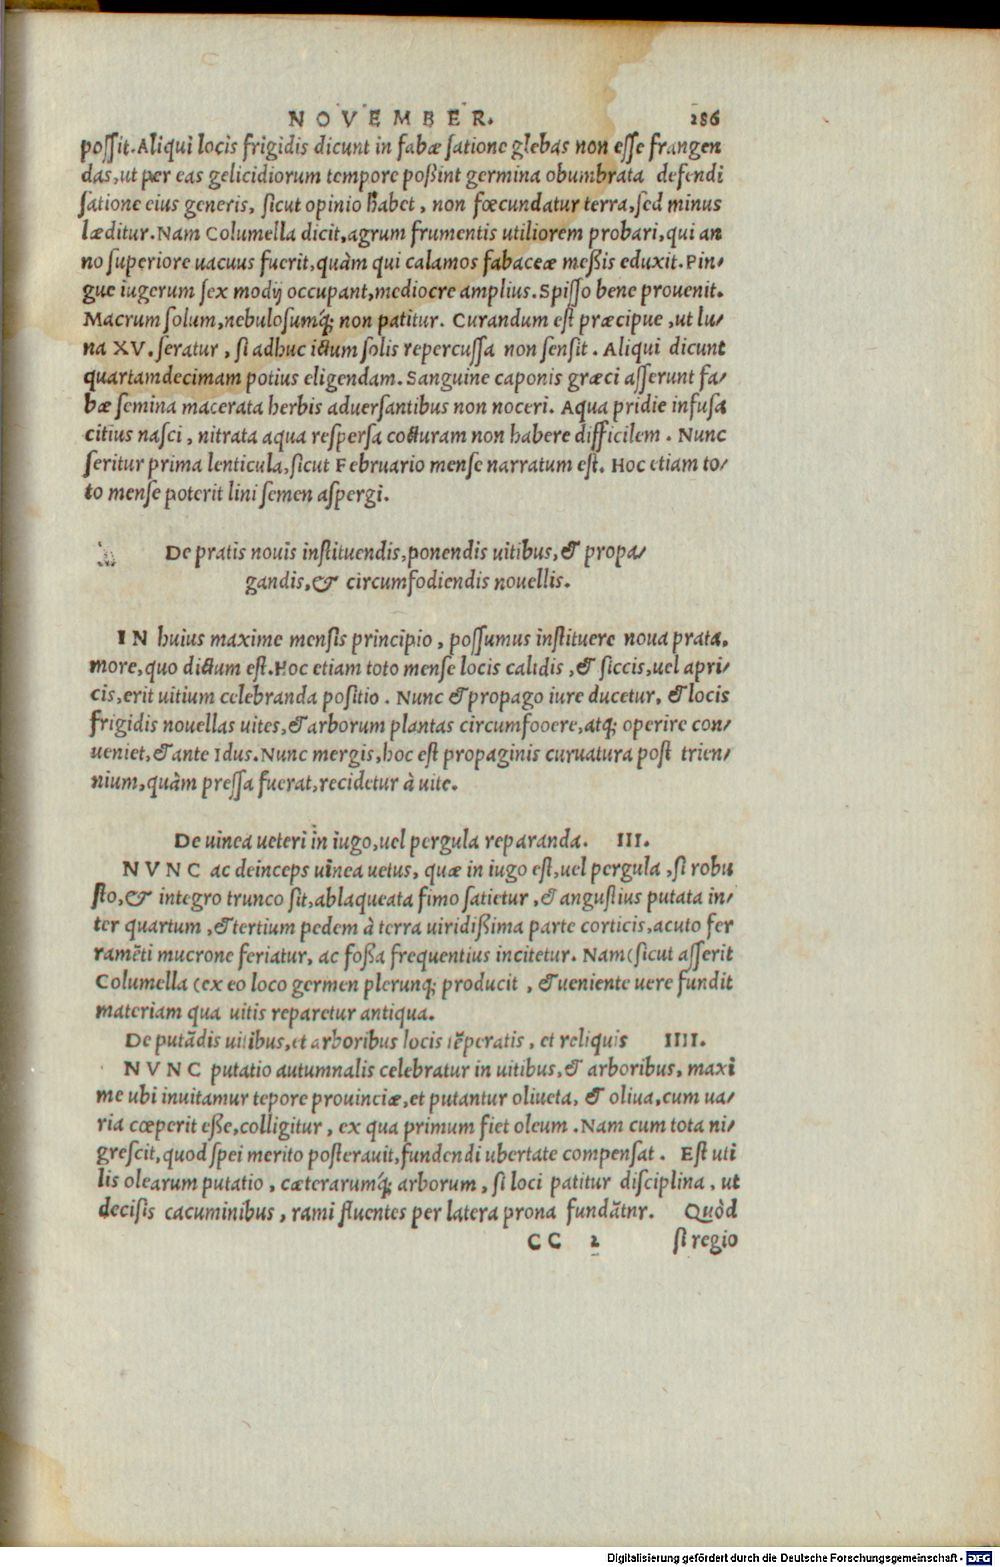 NOVEMBER. 286
possit. Aliqui locis frigidis dicunt in fabæ satione glebas non esse frangen
das, ut per eas gelicidiorum tempore poßint germina obumbrata defendi
satione eius generis, sicut opinio habet, non fœcundatur terra, sed minus
læditur. Nam Columella dicit, agrum frumentis utiliorem probari, qui an
no superiore uacuus fuerit, quàm qui calamos fabaceæ meßis eduxit. Pin-
gue iugerum sex modij occupant, mediocre amplius. Spisso bene prouenit.
Macrum solum, nebulosumq; non patitur. Curandum est præcipue, ut lu-
na XV. seratur, si adhuc ictum solis repercussa non sensit. Aliqui dicunt
quartamdecimam potius eligendam. Sanguine caponis græci asserunt fa-
bæ semina macerata herbis aduersantibus non noceri. Aqua pridie infusa
citius nasci, nitrata aqua respersa cocturam non habere difficilem. Nunc
seritur prima lenticula, sicut Februario mense narratum est. Hoc etiam to-
to mense poterit lini semen aspergi.
De pratis nouis instituendis, ponendis uitibus, & propa-
gandis, & circumfodiendis nouellis.
IN huius maxime mensis principio, possumus instituere noua prata.
more, quo dictum est. Hoc etiam toto mense locis calidis, & siccis, uel apri-
cis, erit uitium celebranda positio. Nunc & propago iure ducetur, & locis
frigidis nouellas uites, & arborum plantas circumfooere, atq; operire con-
ueniet, & ante Idus. Nunc mergis, hoc est propaginis curuatura post trien-
nium, quàm pressa fuerat, recidetur à uite.
De uinea ueteri in iugo, uel pergula reparanda. III.
NVNC ac deinceps uinea uetus, quæ in iugo est, uel pergula, si robu
sto, & integro trunco sit, ablaqueata fimo satietur, & angustius putata in-
ter quartum, & tertium pedem à terra uiridißima parte corticis, acuto fer
ramēti mucrone feriatur, ac foßa frequentius incitetur. Nam (sicut asserit
Columella (ex eo loco germen plerunq; producit, & ueniente uere fundit
materiam qua uitis reparetur antiqua.
De putādis uitibus, et arboribus locis tēperatis, et reliquis IIII.
NVNC putatio autumnalis celebratur in uitibus, & arboribus, maxi
me ubi inuitamur tepore prouinciæ, et putantur oliueta, & oliua, cum ua-
ria cœperit eße, colligitur, ex qua primum fiet oleum. Nam cum tota ni-
grescit, quod spei merito posterauit, fundendi ubertate compensat. Est uti
lis olearum putatio, cæterarumq; arborum, si loci patitur disciplina, ut
decisis cacuminibus, rami fluentes per latera prona fundātnr. Quòd
CC 2 si regio
Digitalisierung gefördert durch die Deutsche Forschungsgemeinschaft - DFG